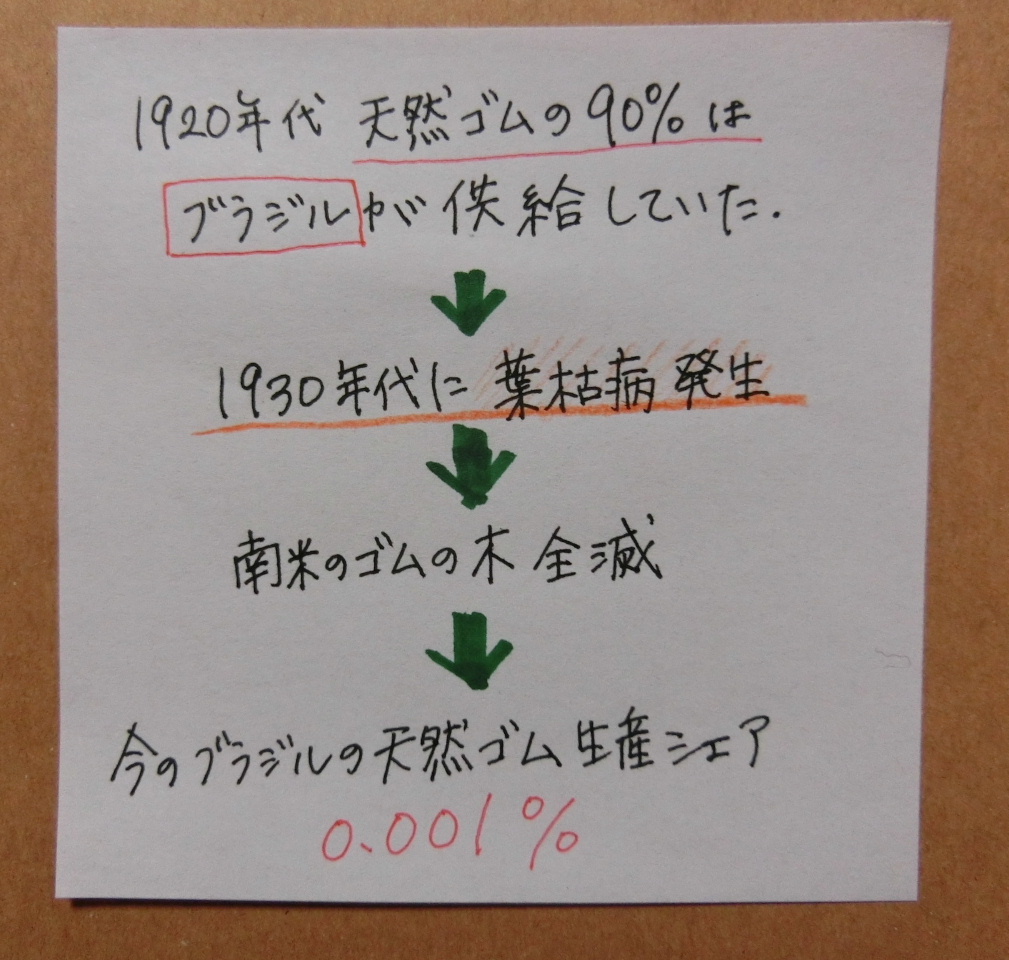 1920年代 天然ゴムの90%は
ブラジルが供給していた.
1930年代に葉枯病発生
南米のゴムの木全滅
今のブラジルの天然ゴム生産シェア
0.001%